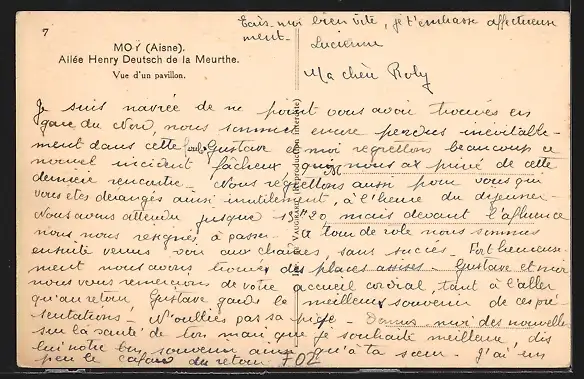 7
Ecris-moi bien vite, je t'embrasse affectueuse
ment-
Lucienne
MOY (Aisne).
Allée Henry Deutsch de la Meurthe.
Vue d'un pavillon.
Ma chère Roby
Je suis navrée de ne point vous avoir trouvés en
gare du Nord, nous sommes encore perdus inévitable-
ment dans cette foule Gustave et moi regrettons beaucoup ce
nouvel incident fâcheux qui nous a privé de cette
dernière rencontre - Nous regrettons aussi pour vous qui
vous êtes dérangés aussi inutilement, à l'heure du déjeuner-
Nous avons attendu jusque 13h20, mais devant l'affluence
nous nous résignés à passer. A tour de rôle nous sommes
ensuite venus voir aux chaînes, sans succès - Fort heureuse-
ment nous avons trouvé des places assises. Gustave et moi
nous vous remercions de votre accueil cordial, tant à l'aller
qu'au retour, Gustave garde le meilleur souvenir de ces pré-
sentations - N'oublies pas sa pipe - Donnes-moi des nouvelles
sur la santé de ton mari que je souhaite meilleure, dis
lui notre bon souvenir ainsi qu'à ta sœur - J'ai un
peu le cafard du retour.
702
VAUGIRARD (Reproduction interdite)